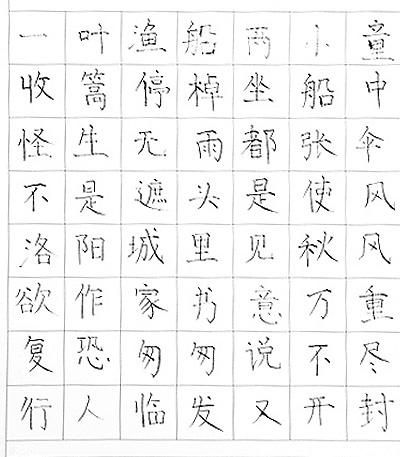 一叶渔船两小童
收篙停棹坐船中
怪生无雨都张伞
不是遮头是使风
洛阳城里见秋风
欲作家书意万重
复恐匆匆说不尽
行人临发又开封